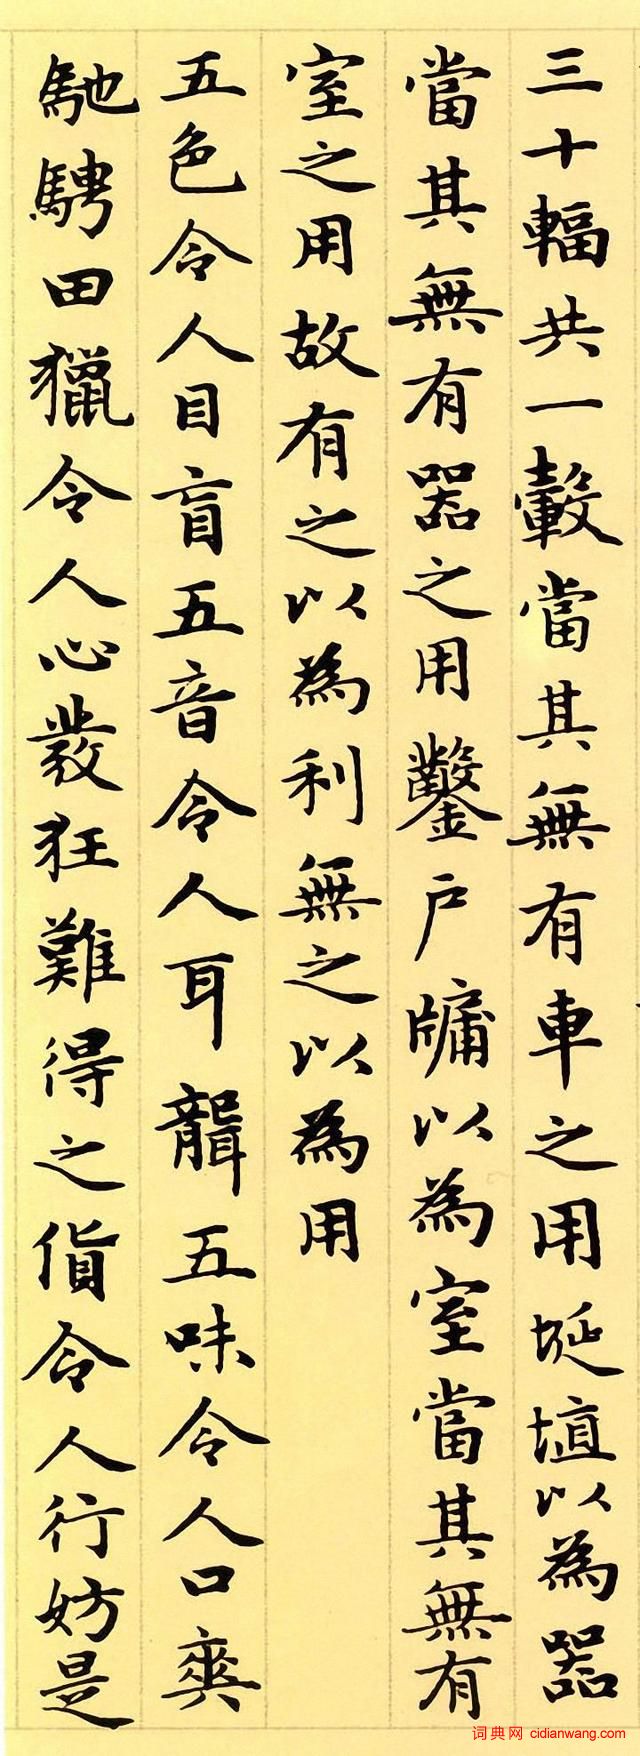 三十輻共一轂當其無有車之用埏埴以為器
當其無有器之用鑿戶牖以為室當其無有
室之用故有之以為利無之以為用
五色令人目盲五音令人耳聾五味令人口爽
馳騁田獵令人心發狂難得之貨令人行妨是
词典网 cidianwang.com